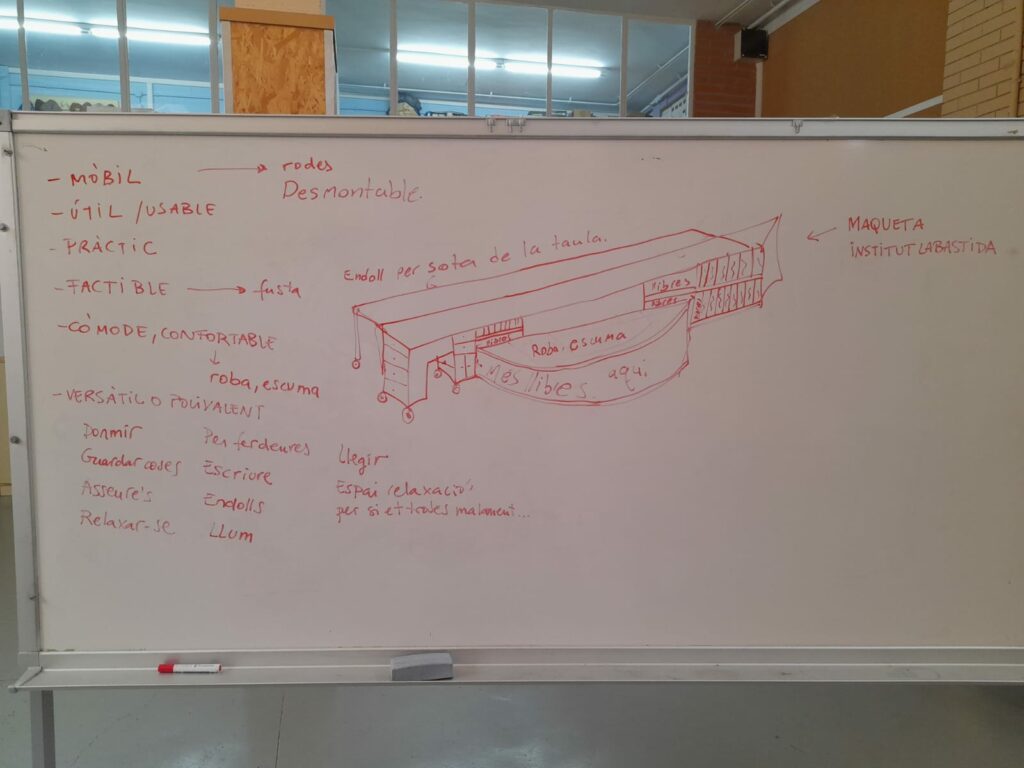 - MÒBIL → rodes
Desmontable.
- ÚTIL / USABLE
- PRÀCTIC
- FACTIBLE → fusta
- CÒMODE, CONFORTABLE
↓
roba, escuma
- VERSÀTIL O POLIVALENT
Dormir
Guardar coses
Asseure's
Relaxar-se
Per fer deures
Escriure
Endolls
LLUM
Llegir
Espai relaxació
per si et trobes malament...
Endoll per sota de la taula.
llibres
llibres
llibres
Roba, escuma
Mes llibres aquí
← MAQUETA
INSTITUT LABASTIDA